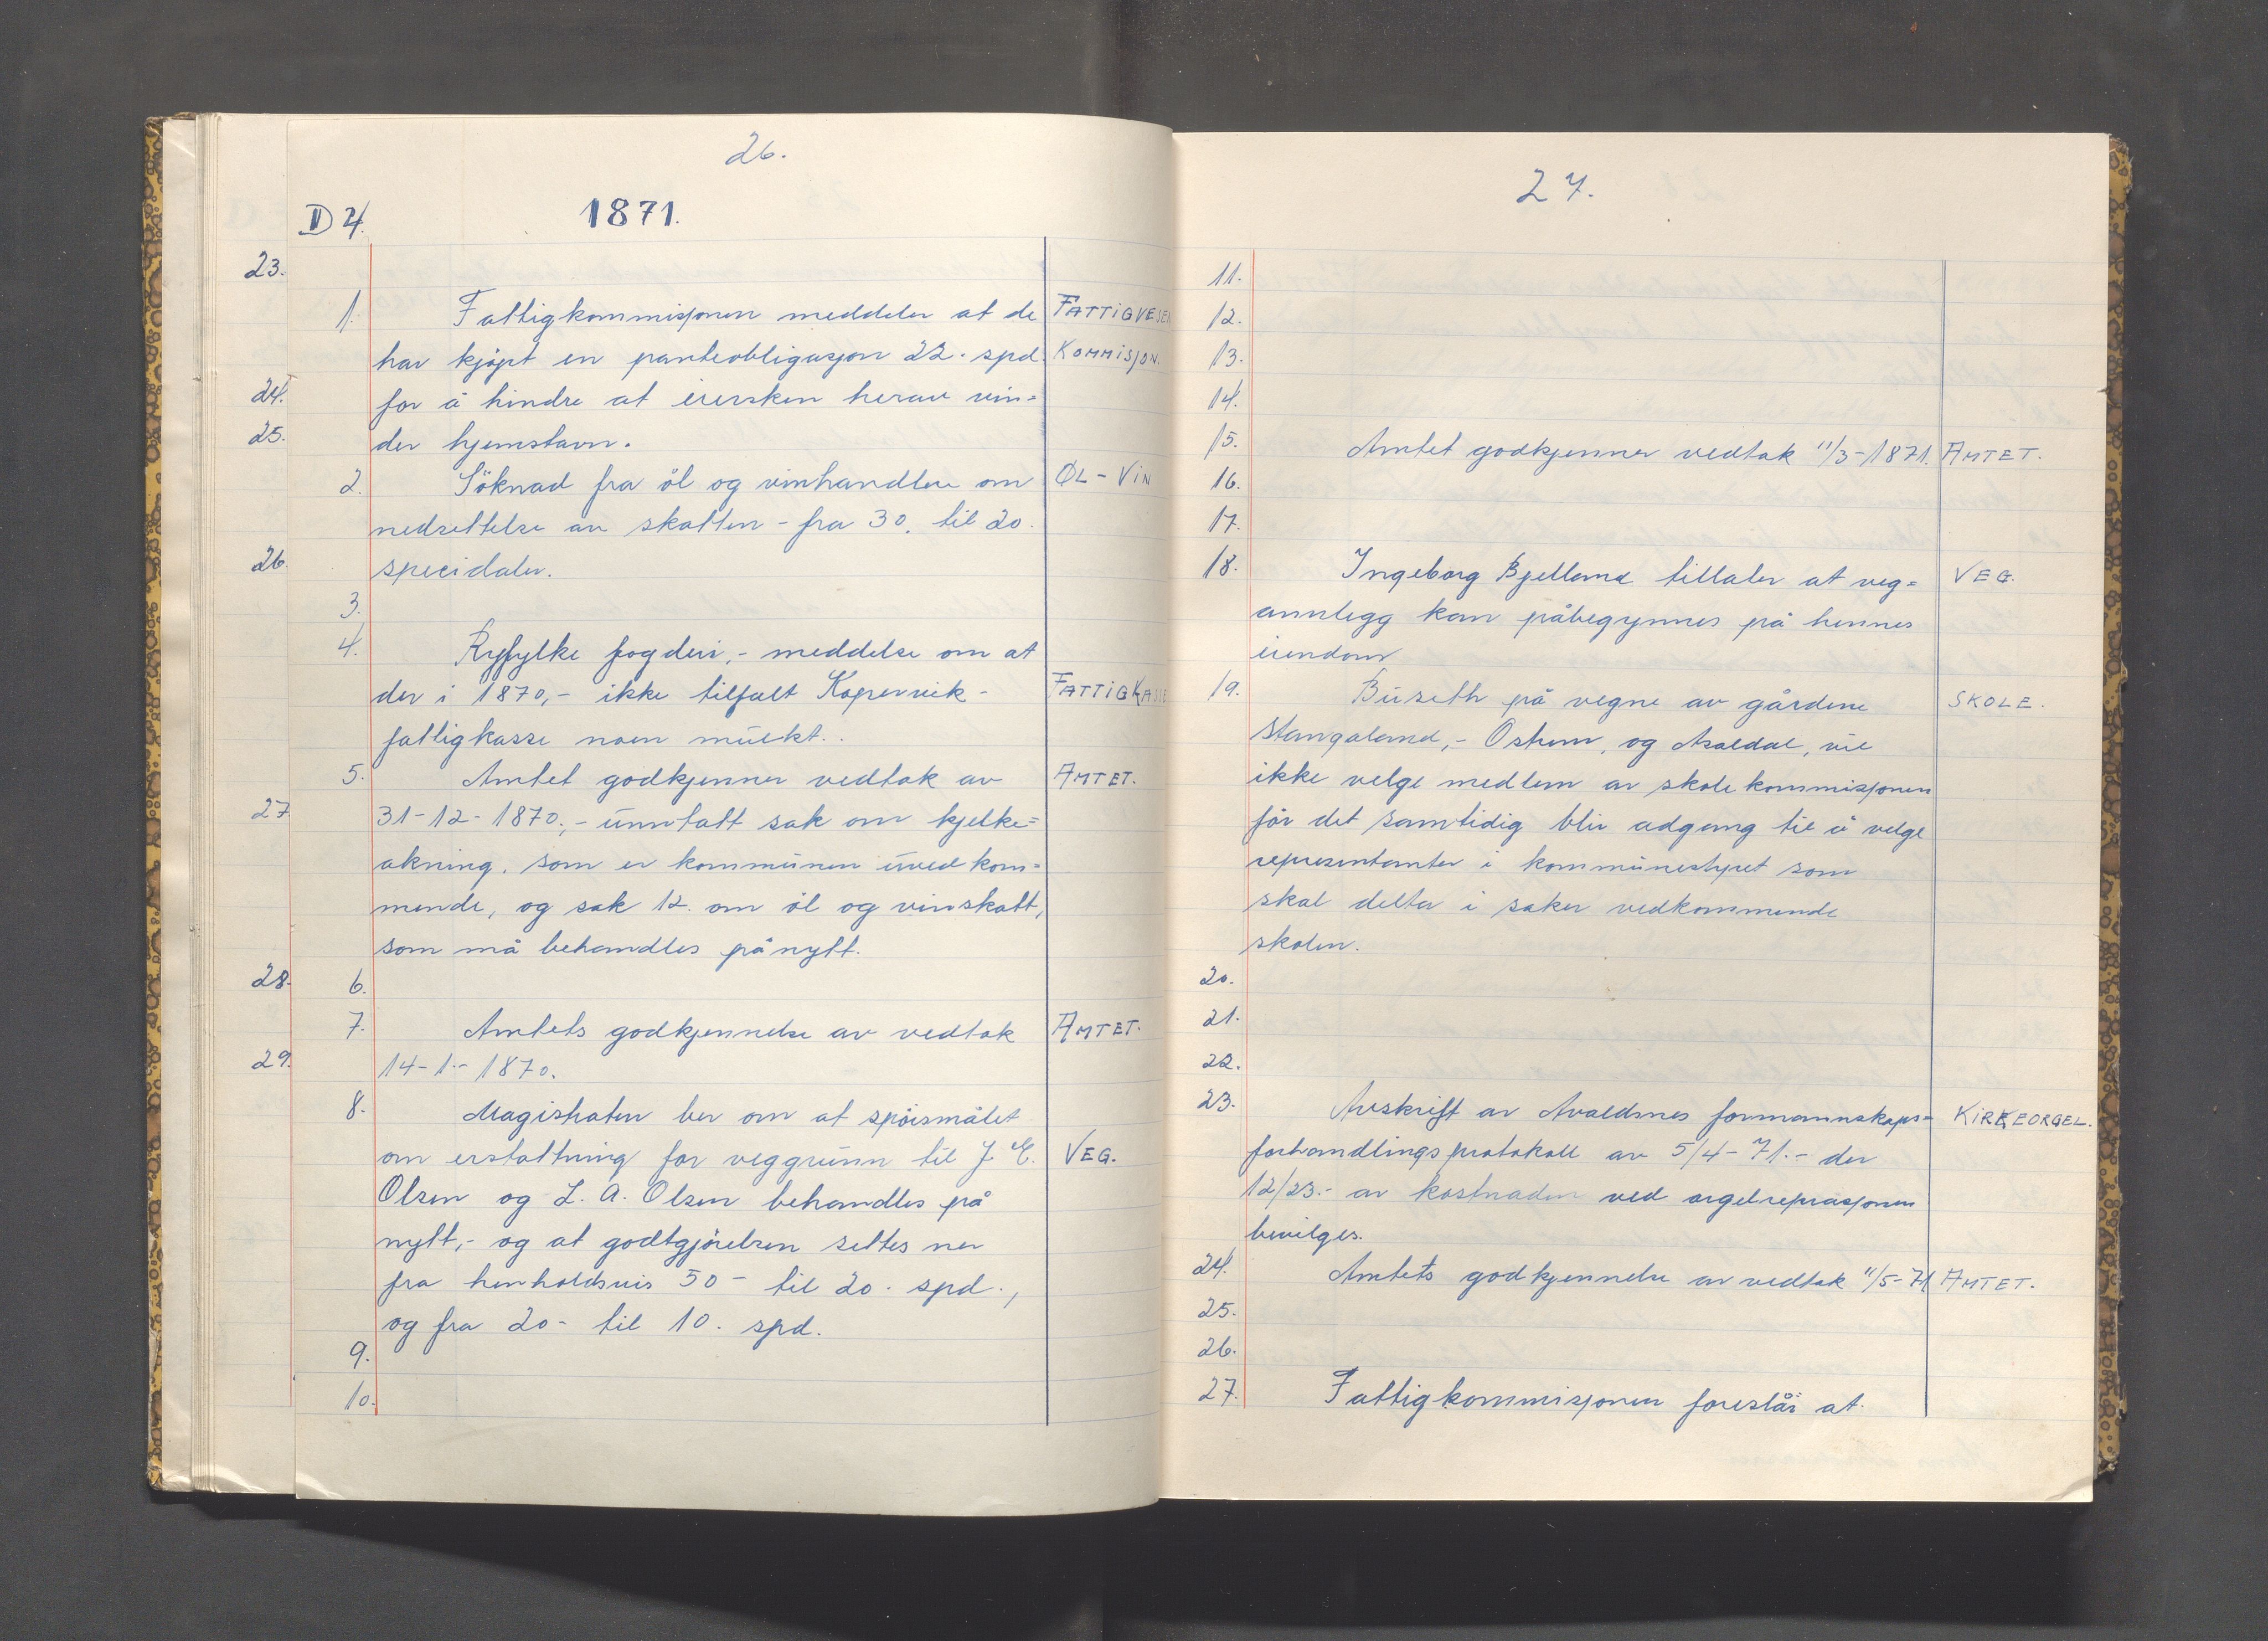 26.
D 4. 1871.
23.
1. Fattigkommisjonen meddeler at de FATTIGVESEN
har kjøpt en panteobligasjon 22. spd. KOMMISJON.
24. for å hindre at eiersken herav vin=
25. der hjemstavn.
2. Söknad fra öl og vinhandlere om ØL - VIN
nedsettelse av skatten - fra 30. til 20.
26. specidaler.
3.
4. Ryfylke fogderi, - meddelse om at
der i 1870, - ikke tilfalt Kopervik - FATTIGKASSE
fattigkasse noen mulkt.
5. Amtet godkjenner vedtak av AMTET.
27 31-12-1870. - unntatt sak om kjelke=
akning. som er kommunen uvedkom=
mende, og sak 12. om öl og vinskatt,
som må behandles pånytt.
28. 6.
7. Amtets godkjennelse av vedtak AMTET.
29. 14-1.-1870.
8. Magistraten ber om at spörsmålet
om erstattning for veggrunn til J. E. VEG.
Olsen og L. A. Olsen behandles på
nytt, - og at godtgjörelsen settes ner
fra henholdsvis 50 - til 20. spd.,
og fra 20 - til 10. spd.
9.
10.
27.
11.
12.
13.
14.
15. Amtet godkjenner vedtak 11/3-1871. AMTET.
16.
17.
18. Ingeborg Bjelland tillater at veg= VEG.
annlegg kan påbegynnes på hennes
eiendom
19. Buseth på vegne av gårdene SKOLE.
Stangaland, - Østrem, og Åsaldal, vil
ikke velge medlem av skolekommisjonen
för det samtidig blir adgang til å velge
representanter i kommunestyret som
skal delta i saker vedkommende
skolen.
20.
21.
22.
23. Avskrift av Avaldsnes formannskaps= KIRKEORGEL.
forhandlingsprotokoll av 5/4-71. - der
12/23.- av kostnaden ved orgelreprasjonen
bevilges.
24. Amtets godkjennelse av vedtak 11/5-71 AMTET.
25.
26.
27. Fattigkommisjonen foreslår at.